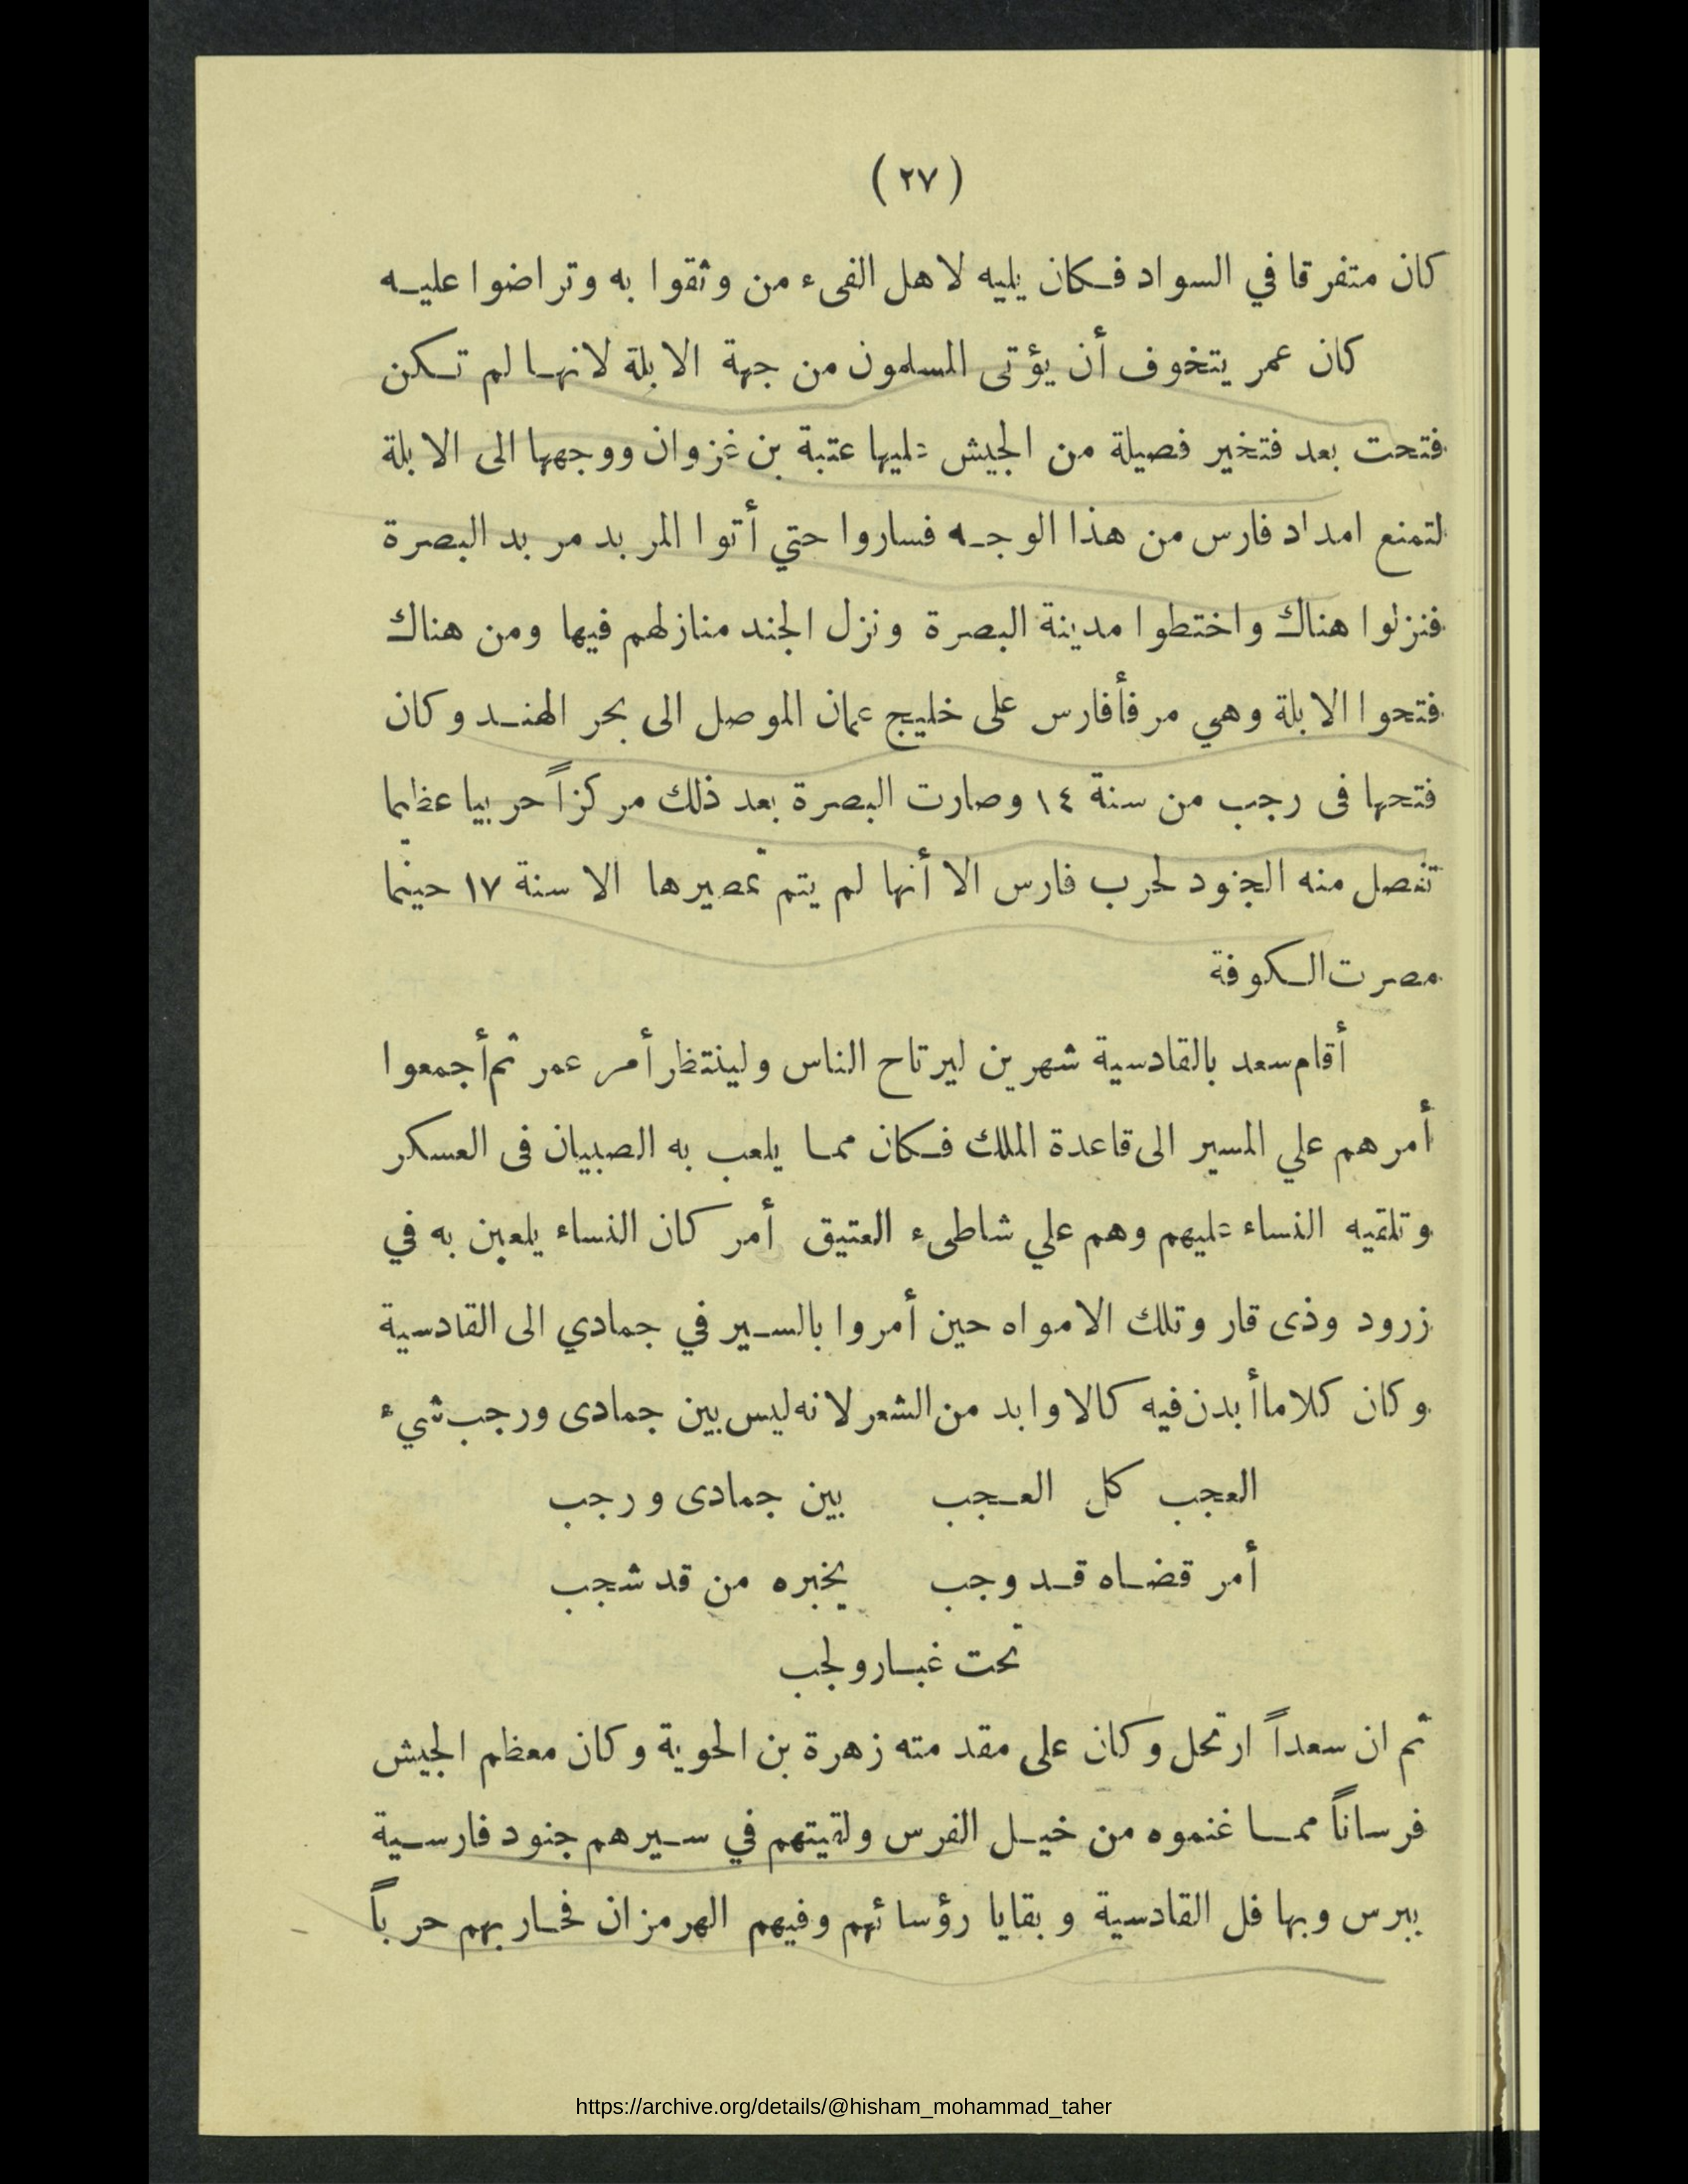 ( ٢٧ )
كان متفرقا في السواد فكان يليه لاهل الفىء من وثقوا به وتراضوا عليه
كان عمر يتخوف أن يؤتى المسلمون من جهة الابلة لانها لم تكن
فتحت بعد فتخير فصيلة من الجيش عليها عتبة بن غزوان ووجهها الى الابلة
لتمنع امداد فارس من هذا الوجه فساروا حتي أتوا المربد مربد البصرة
فنزلوا هناك واختطوا مدينة البصرة ونزل الجند منازلهم فيها ومن هناك
فتحوا الابلة وهي مرفأ فارس على خليج عمان الموصل الى بحر الهند وكان
فتحها فى رجب من سنة ١٤ وصارت البصرة بعد ذلك مركزاً حربيا عظيما
تفصل منه الجنود لحرب فارس الا أنها لم يتم تمصيرها الا سنة ١٧ حينما
مصرت الكوفة
أقام سعد بالقادسية شهرين ليرتاح الناس ولينتظر أمر عمر ثم أجمعوا
أمرهم علي المسير الى قاعدة الملك فكان مما يلعب به الصبيان فى العسكر
وتلقيه النساء عليهم وهم علي شاطىء العتيق أمر كان النساء يلعبن به في
زرود وذى قار وتلك الامواه حين أمروا بالسير في جمادي الى القادسية
وكان كلاما أبدن فيه كالاوابد من الشعر لانه ليس بين جمادى ورجب شيء
العجب كل العجب بين جمادى ورجب
أمر قضاه قد وجب يخبره من قد شجب
تحت غبار ولجب
ثم ان سعداً ارتحل وكان على مقدمته زهرة بن الحوية وكان معظم الجيش
فرساناً مما غنموه من خيل الفرس ولقيتهم في سيرهم جنود فارسية
ببرس وبها فل القادسية وبقايا رؤسائهم وفيهم الهرمزان فحاربهم حرباً
https://archive.org/details/@hisham_mohammad_taher